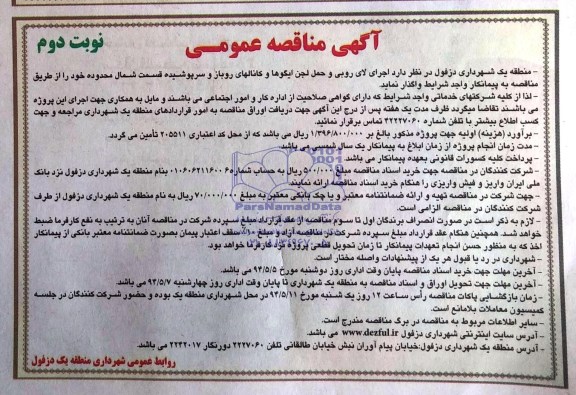 آگهی مناقصه عمومی
نوبت دوم
- منطقه یک شهرداری دزفول در نظر دارد اجرای لای روبی و حمل لجن ایگوها و کانالهای روباز و سرپوشیده قسمت شمال محدوده خود را از طریق
مناقصه به پیمانکار واجد شرایط واگذار نماید
- لذا از کلیه شرکتهای خدماتی واجد شرایط که دارای گواهی صلاحیت از اداره کار و امور اجتماعی می باشند و مایل به همکاری جهت اجرای این پروژه
می باشند تقاضا میگردد ظرف مدت یک هفته پس از درج این آگهی جهت دریافت اوراق مناقصه به امور قراردادهای منطقه یک شهرداری مراجعه و جهت
کسب اطلاع بیشتر با تلفن شماره ۴۲۲۲۷۰۶۰ تماس برقرار نمائید.
- برآورد (هزینه) اولیه جهت پروژه مذکور بالغ بر ۱/۳۹۶/۸۰۰/۰۰۰ ریال می باشد که از محل کد اعتباری ۲۰۵۵۱۱ تأمین می گردد.
- مدت زمان انجام پروژه از زمان ابلاغ به پیمانکار یک سال شمسی می باشد.
- پرداخت کلیه کسورات قانونی بعهده پیمانکار می باشد.
- شرکت کنندگان در مناقصه جهت خرید اسناد مناقصه مبلغ ۵۰۰/۰۰۰ ریال به حساب شماره ۰۱۰۶۰۶۲۱۱۶۰۰۶ بنام منطقه یک شهرداری دزفول نزد بانک
ملی ایران واریز و فیش واریزی را هنگام خرید اسناد مناقصه ارائه نمایند.
- جهت شرکت در مناقصه تهیه و ارائه ضمانتنامه معتبر و یا چک بانکی معتبر به مبلغ ۷۰/۰۰۰/۰۰۰ ریال به نام منطقه یک شهرداری دزفول از طرف
شرکت کنندگان در مناقصه الزامی است.
- لازم به ذکر است در صورت انصراف برندگان اول تا سوم مناقصه از عقد قرارداد مبلغ سپرده شرکت در مناقصه آنان به ترتیب به نفع کارفرما ضبط
خواهد شد. همچنین هنگام عقد قرارداد مبلغ سپرده شرکت در مناقصه آزاد و مبلغ سقف اعتبار پیمان بصورت ضمانتنامه معتبر بانکی از پیمانکار
اخذ که به منظور حسن انجام تعهدات پیمانکار تا زمان تحویل قطعی پروژه نزد کارفرما خواهد بود.
- شهرداری در رد یا قبول هر یک از پیشنهادات واصله مختار است.
- آخرین مهلت جهت خرید اسناد مناقصه پایان وقت اداری روز دوشنبه مورخ ۹۴/۵/۵ می باشد.
- آخرین مهلت جهت تحویل اوراق و اسناد مناقصه به منطقه یک شهرداری تا پایان وقت اداری روز چهارشنبه ۹۴/۵/۷ می باشد.
- زمان بازگشایی پاکات مناقصه رأس ساعت ۱۲ روز یک شنبه مورخ ۹۴/۵/۱۱ در محل شهرداری منطقه یک بوده و حضور شرکت کنندگان در جلسه
کمیسیون معاملات بلامانع است.
- سایر اطلاعات مربوط به مناقصه در برگ مناقصه مندرج است.
- آدرس سایت اینترنتی شهرداری دزفول www.dezful.ir می باشد.
- آدرس منطقه یک شهرداری دزفول:خیابان پیام آوران نبش خیابان طالقانی تلفن ۲۲۲۷۰۶۰ دورنگار ۲۲۳۲۰۱۷ می باشد.
روابط عمومی شهرداری منطقه یک دزفول
ParsNamadData